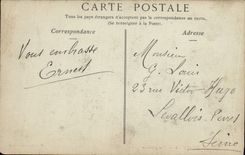 CARTE POSTALE
Tous les pays étrangers n'acceptent pas la correspondance au recto.
(Se renseigner à la Poste).
Correspondance
Adresse
Vous embrasse
Ernest
Monsieur
G. Louis
23 rue Victor Hugo
Levallois-Perret
Seine